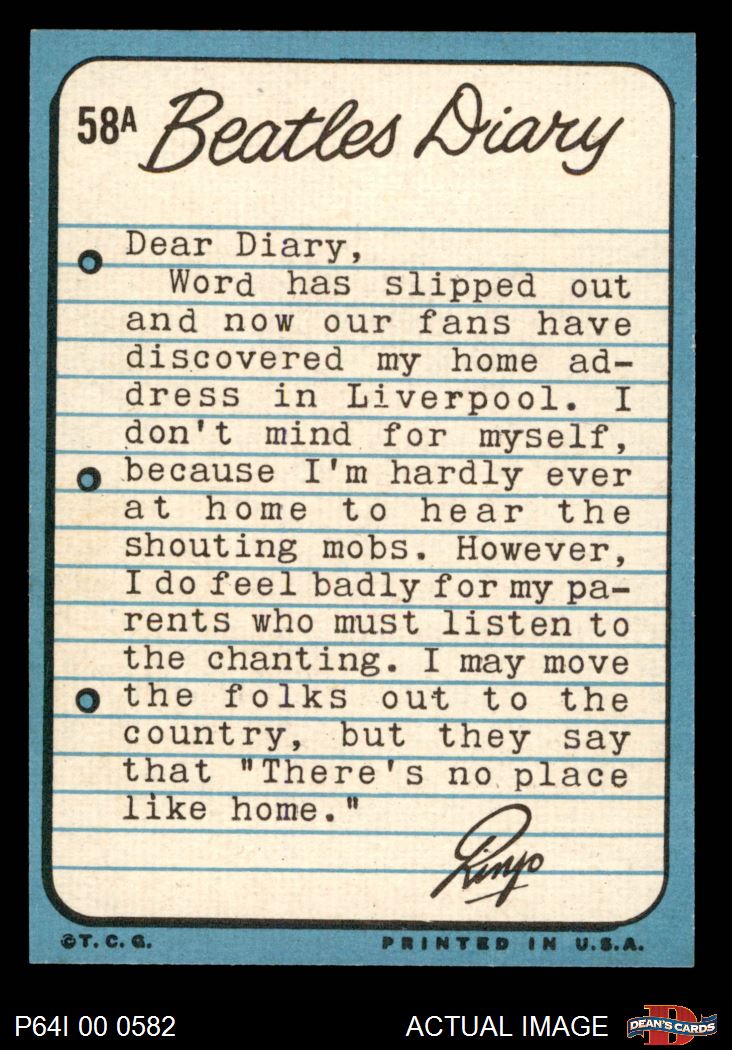 58A Beatles Diary
Dear Diary,
Word has slipped out
and now our fans have
discovered my home ad-
dress in Liverpool. I
don't mind for myself,
because I'm hardly ever
at home to hear the
shouting mobs. However,
I do feel badly for my pa-
rents who must listen to
the chanting. I may move
the folks out to the
country, but they say
that "There's no place
like home."
Ringo
©T.C.G.
PRINTED IN U.S.A.
P64I 00 0582
ACTUAL IMAGE
D
DEAN'S CARDS